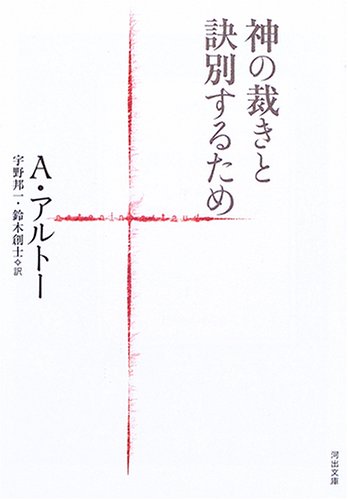 神の裁きと
訣別するため
A・アルトー
宇野邦一・鈴木創士 訳
antonin artaud
河出文庫